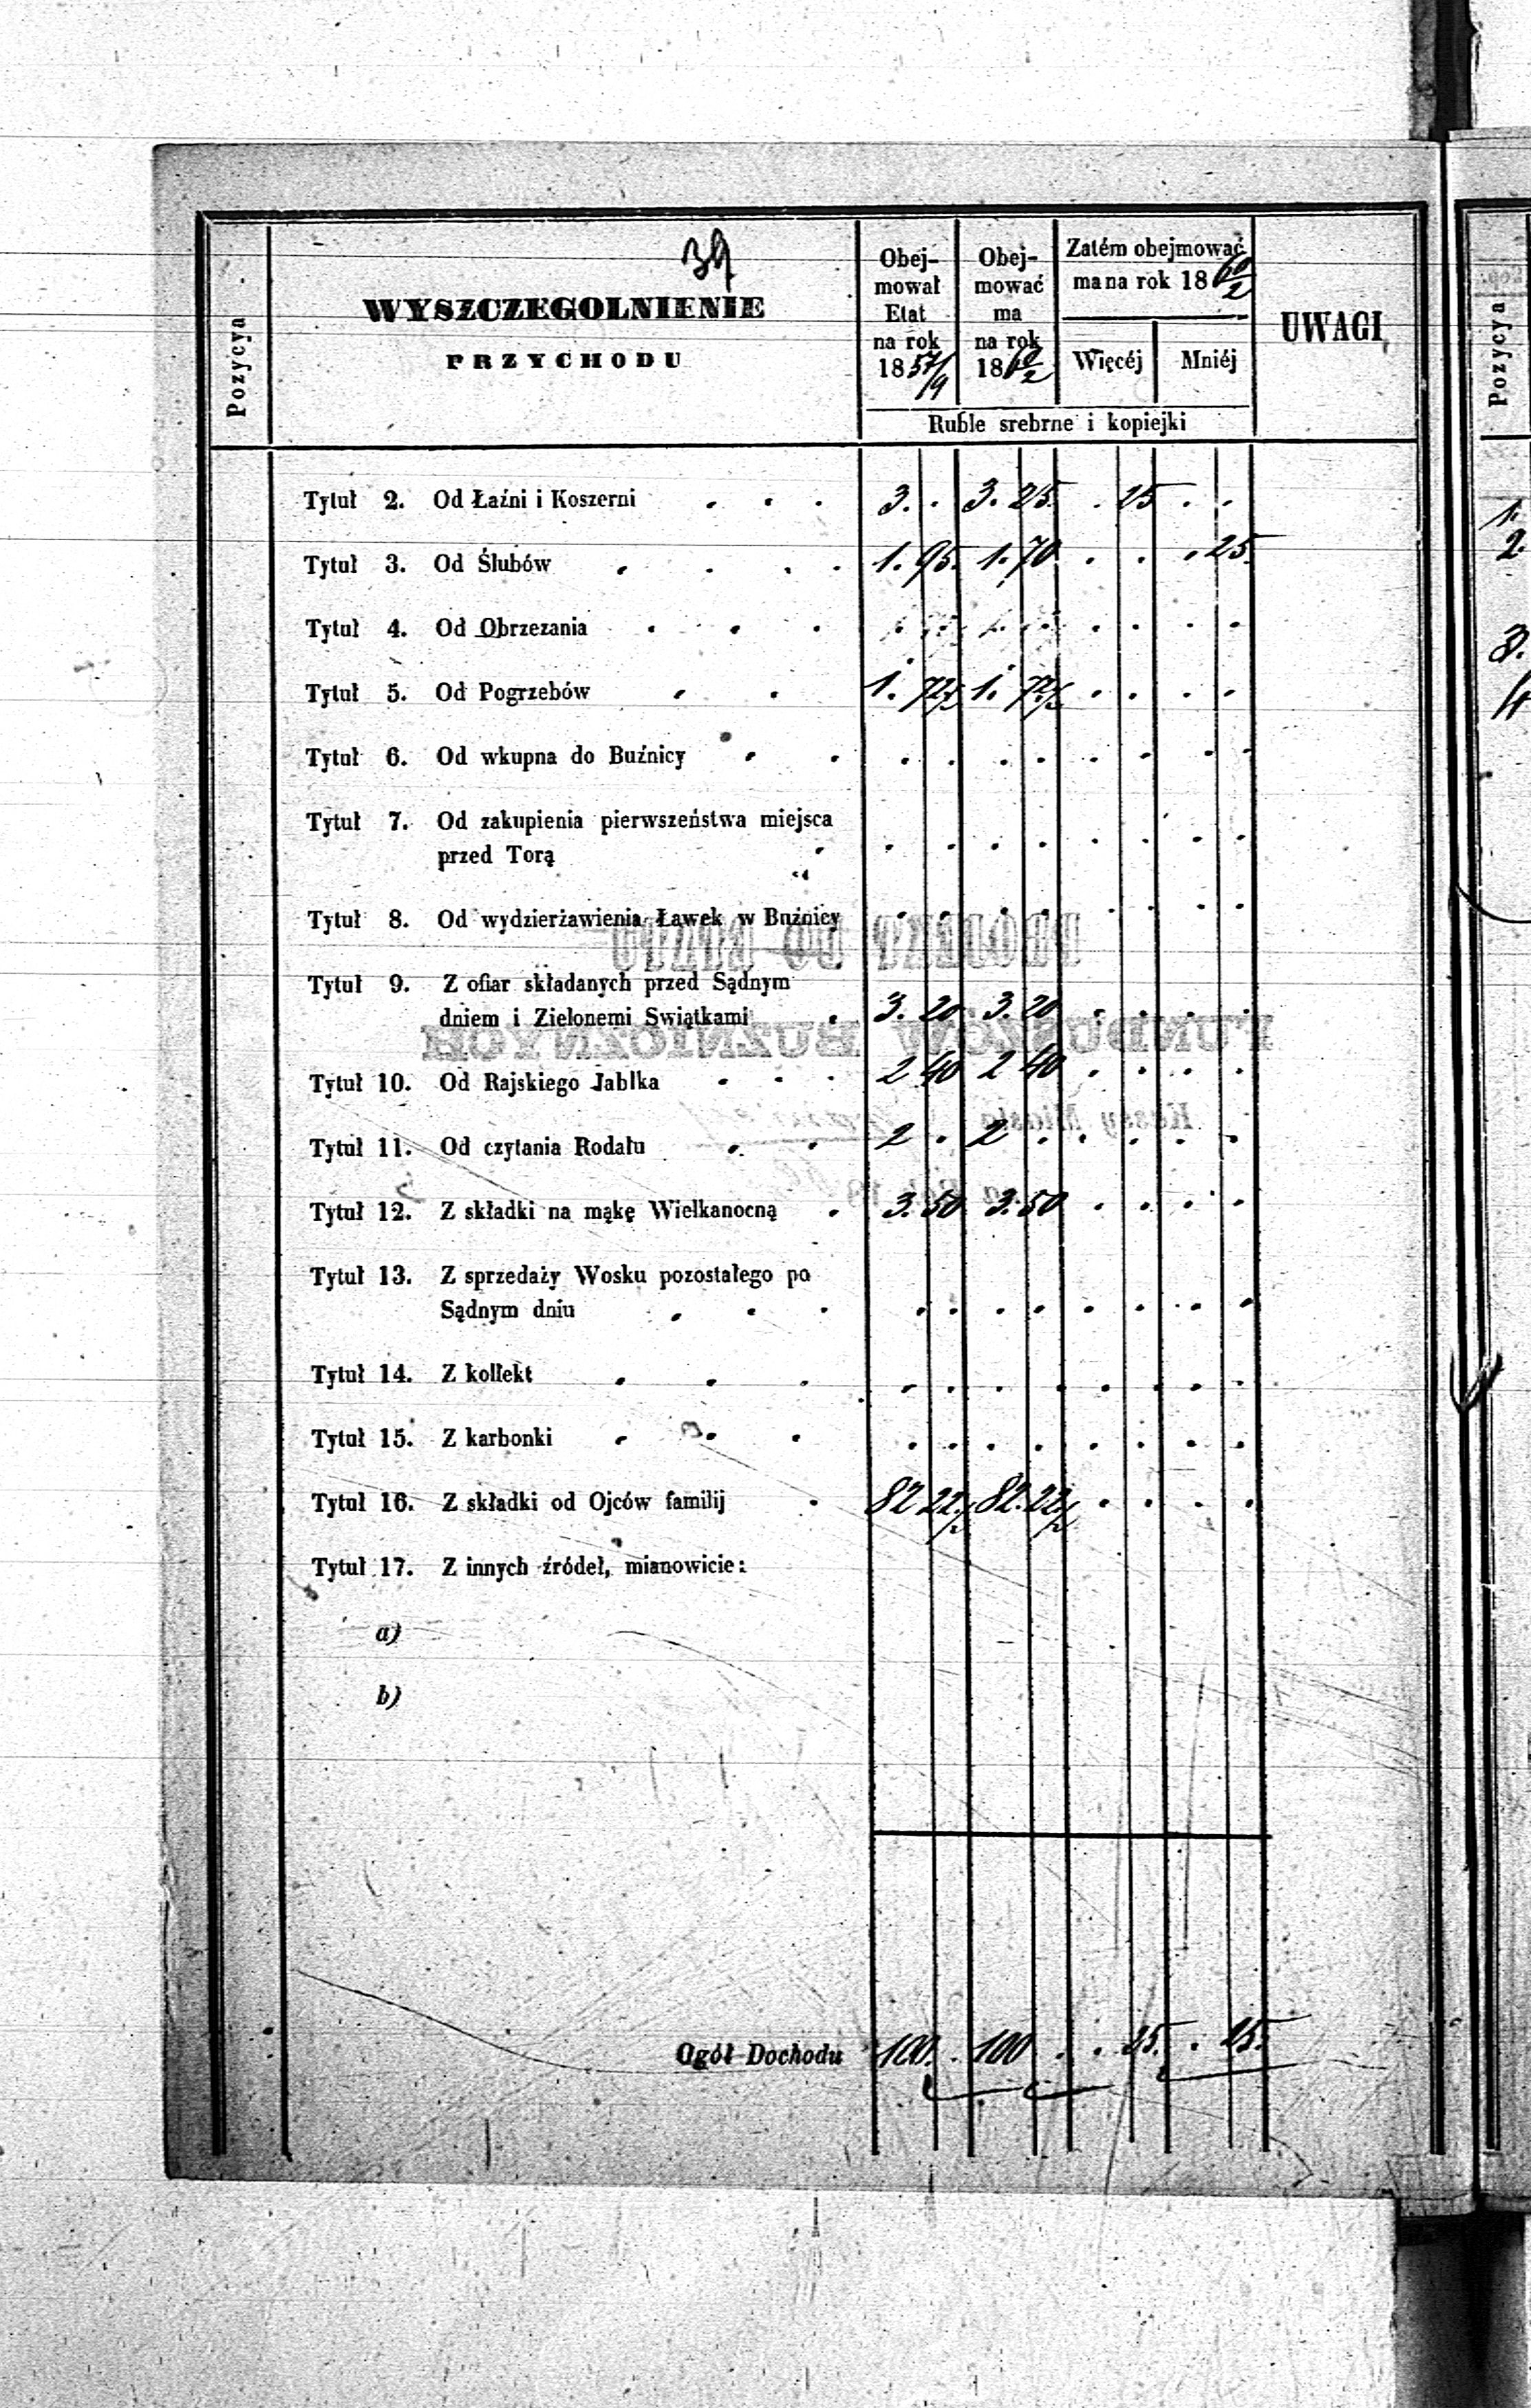 39
Pozycya
WYSZCZEGOLNIENIE
PRZYCHODU
Obej-
mował
Etat
na rok
1857/9
Obej-
mować
ma
na rok
1860/2
Zatém obejmować
ma na rok 1860/2
Więcéj Mniéj
Ruble srebrne i kopiejki
UWAGI
Tytuł 2. Od Łaźni i Koszerni . . . 3. . 3. 25. . 25 . .
Tytuł 3. Od Ślubów . . . . 1. 95. 1. 70 . . . 25.
Tytuł 4. Od Obrzezania . . .
Tytuł 5. Od Pogrzebów . . 1. 72½ 1. 72½ . . . .
Tytuł 6. Od wkupna do Buźnicy . . . . . . . . . .
Tytuł 7. Od zakupienia pierwszeństwa miejsca
przed Torą . . . . . . . . .
Tytuł 8. Od wydzierżawienia Ławek w Buźnicy . . . . . . . .
Tytuł 9. Z ofiar składanych przed Sądnym
dniem i Zielonemi Swiątkami . 3. 20 3. 20 . . . .
Tytuł 10. Od Rajskiego Jabłka . . . 2 40 2 40 . . . .
Tytuł 11. Od czytania Rodału . . 2 . 2 . . . . .
Tytuł 12. Z składki na mąkę Wielkanocną . 3. 50 3. 50 . . . .
Tytuł 13. Z sprzedaży Wosku pozostałego po
Sądnym dniu . . . . . . . . . . .
Tytuł 14. Z kollekt . . . . . . . . . . .
Tytuł 15. Z karbonki . . . . . . . . . . .
Tytuł 16. Z składki od Ojców familij . 82 22½ 82. 22½ . . . .
Tytuł 17. Z innych źródeł, mianowicie:
a)
b)
Ogół Dochodu 100. . 100 . . 25. . 25.
Pozycya
1.
2.
3.
4